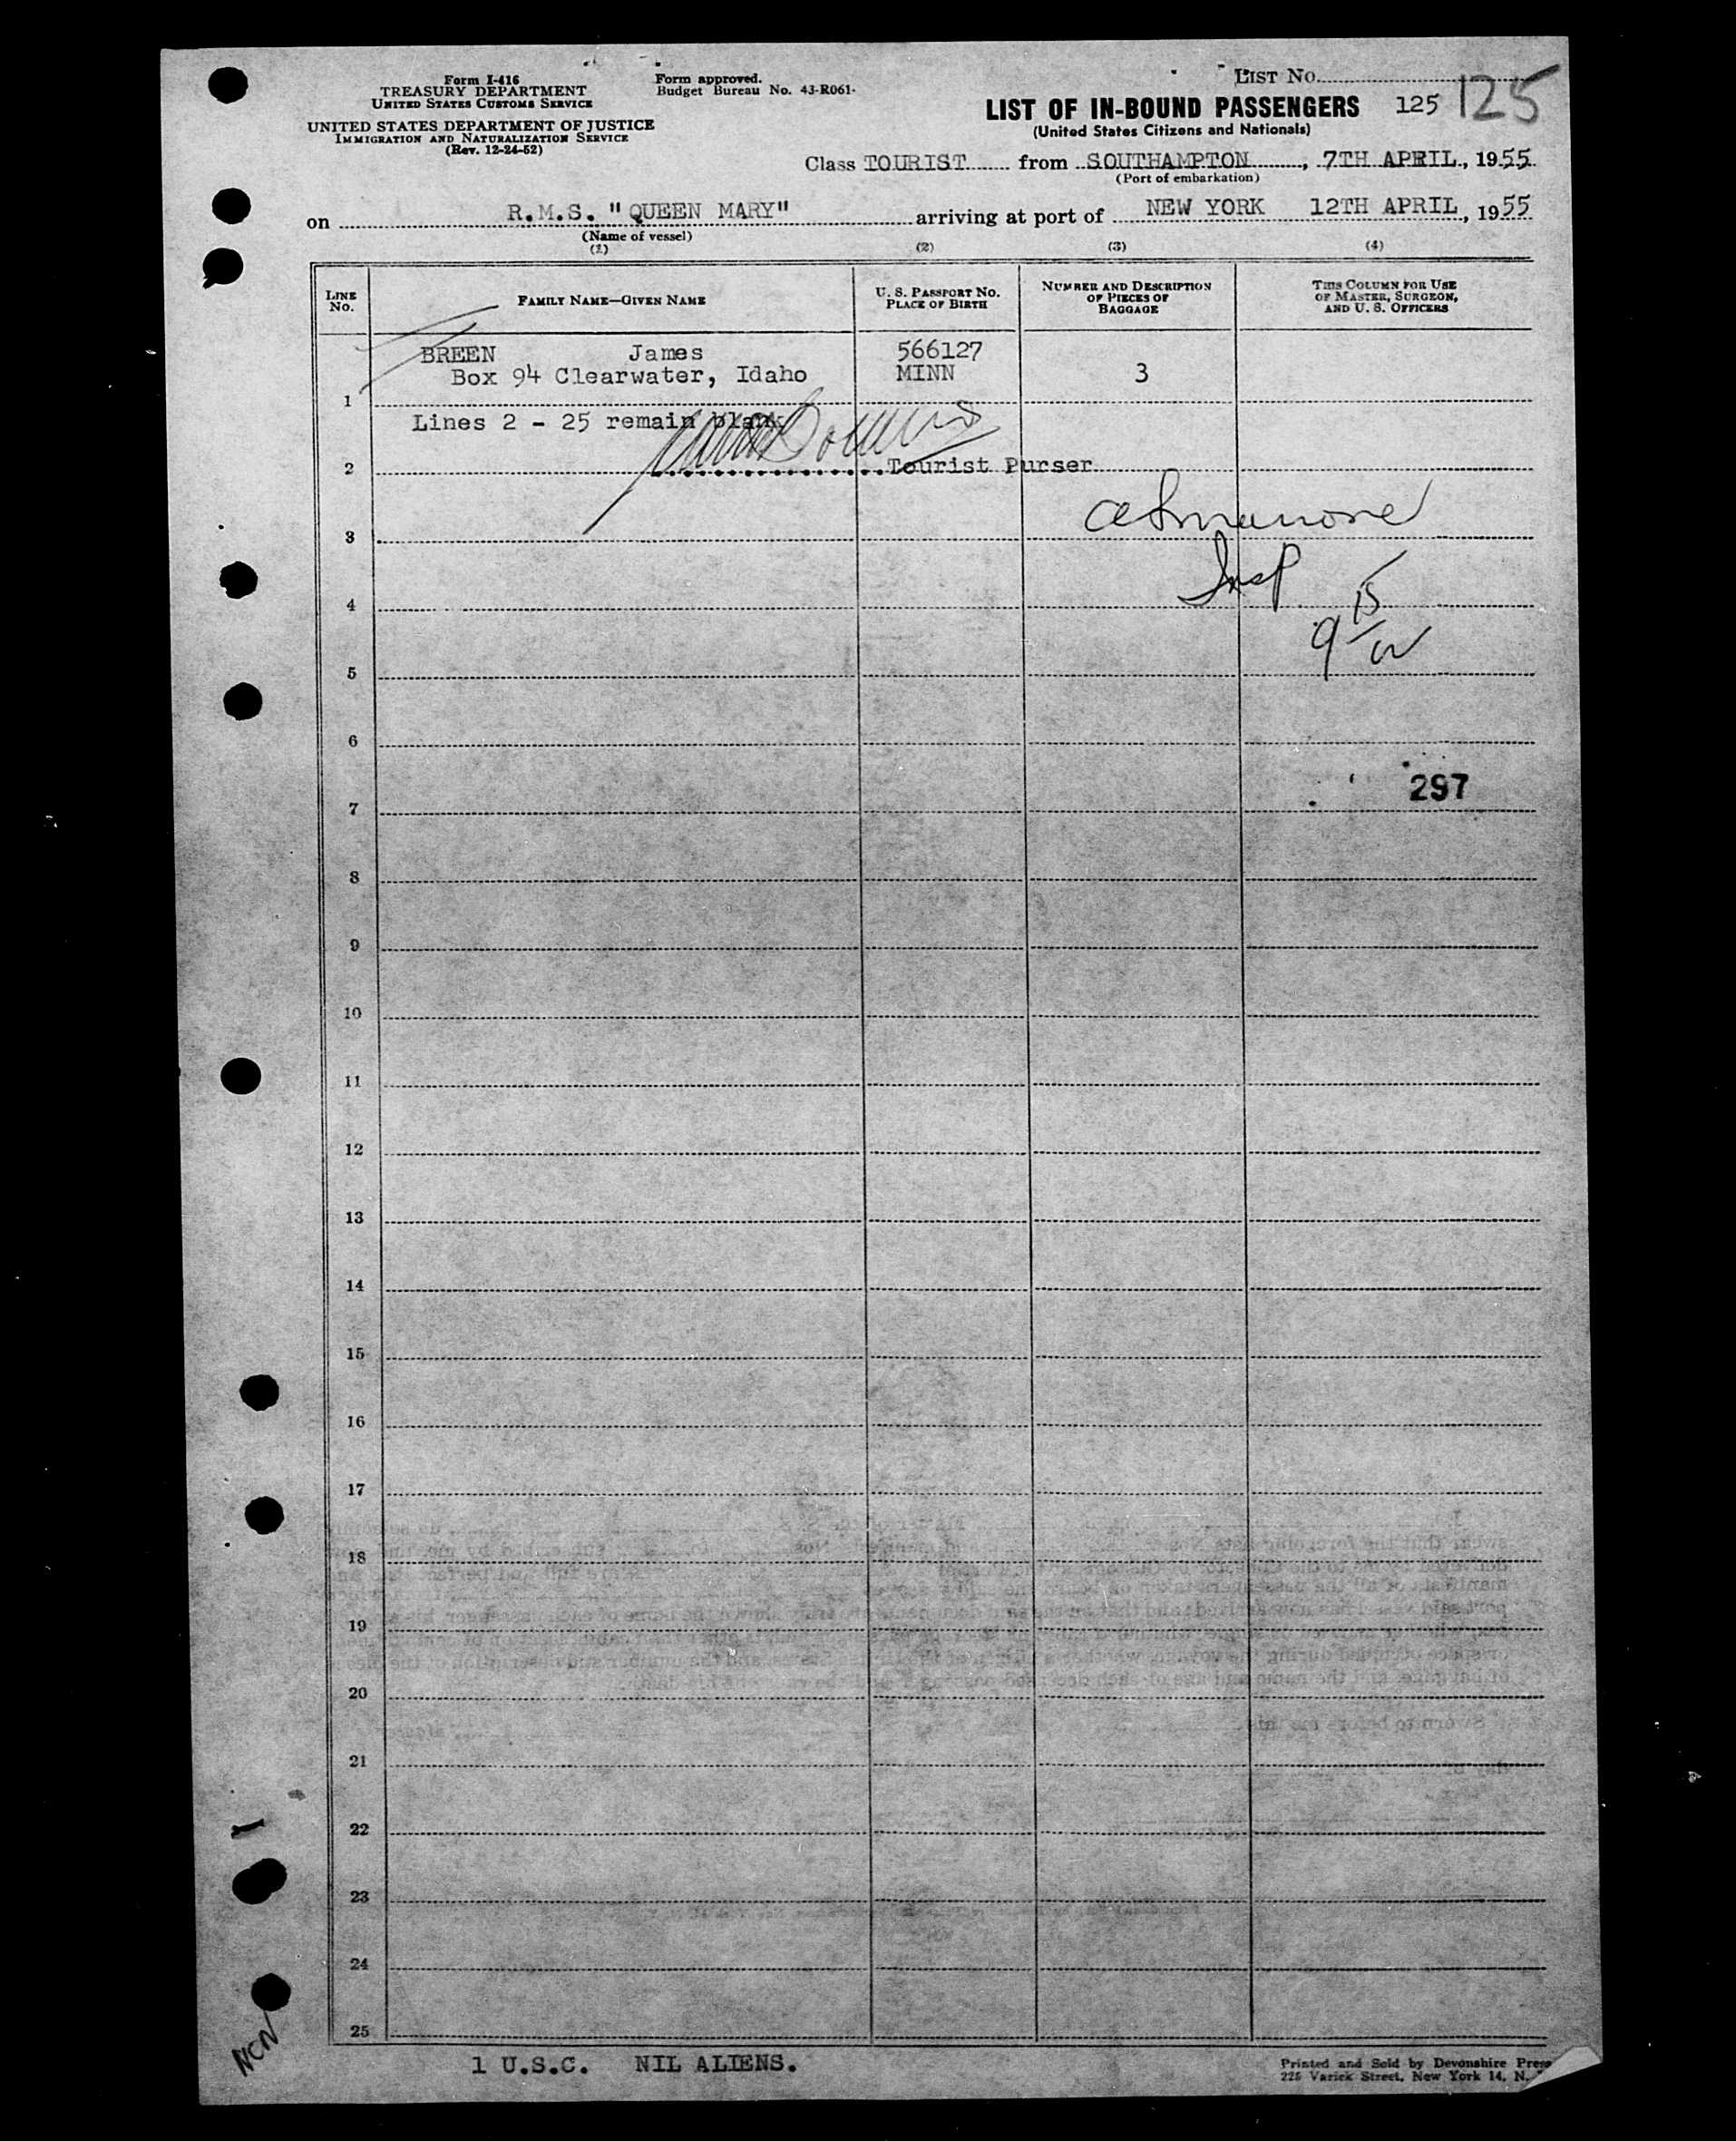 Form I-416
TREASURY DEPARTMENT
UNITED STATES CUSTOMS SERVICE
UNITED STATES DEPARTMENT OF JUSTICE
IMMIGRATION AND NATURALIZATION SERVICE
(Rev. 12-24-52)
Form approved.
Budget Bureau No. 43-R061.
LIST NO.
LIST OF IN-BOUND PASSENGERS 125 125
(United States Citizens and Nationals)
Class TOURIST from SOUTHAMPTON, 7TH APRIL, 1955
(Port of embarkation)
on R.M.S. "QUEEN MARY" arriving at port of NEW YORK 12TH APRIL, 1955
(Name of vessel)
(1) (2) (3) (4)
LINE NO.
FAMILY NAME—GIVEN NAME
U. S. PASSPORT NO.
PLACE OF BIRTH
NUMBER AND DESCRIPTION
OF PIECES OF
BAGGAGE
THIS COLUMN FOR USE
OF MASTER, SURGEON,
AND U. S. OFFICERS
BREEN James 566127
Box 94 Clearwater, Idaho MINN 3
1
Lines 2 - 25 remain blank
2 Tourist Purser
3
Insp
4
9 15
5
6
297
7
8
9
10
11
12
13
14
15
16
17
18
19
20
21
22
23
24
25
NCN
1 U.S.C. NIL ALIENS.
Printed and Sold by Devonshire Press
225 Varick Street, New York 14, N.